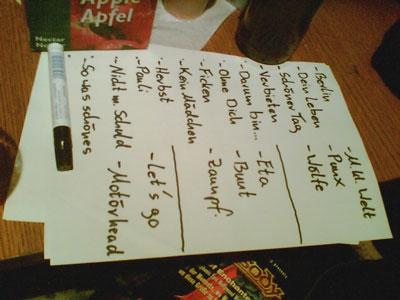 Apple
Apfel
Nectar
- Berlin
- Dein Leben
Schöner Tag
- Verbieten
- Darum bin...
- Ohne Dich
- Ficken
- Kein Mädchen
- Herbst
- Pauli
- Nicht m. Schuld
- So was schönes
Welt
- Punx
- Wölfe
- Eta
- Bunt
- Zaunpf.
- Let's go
- Motörhead